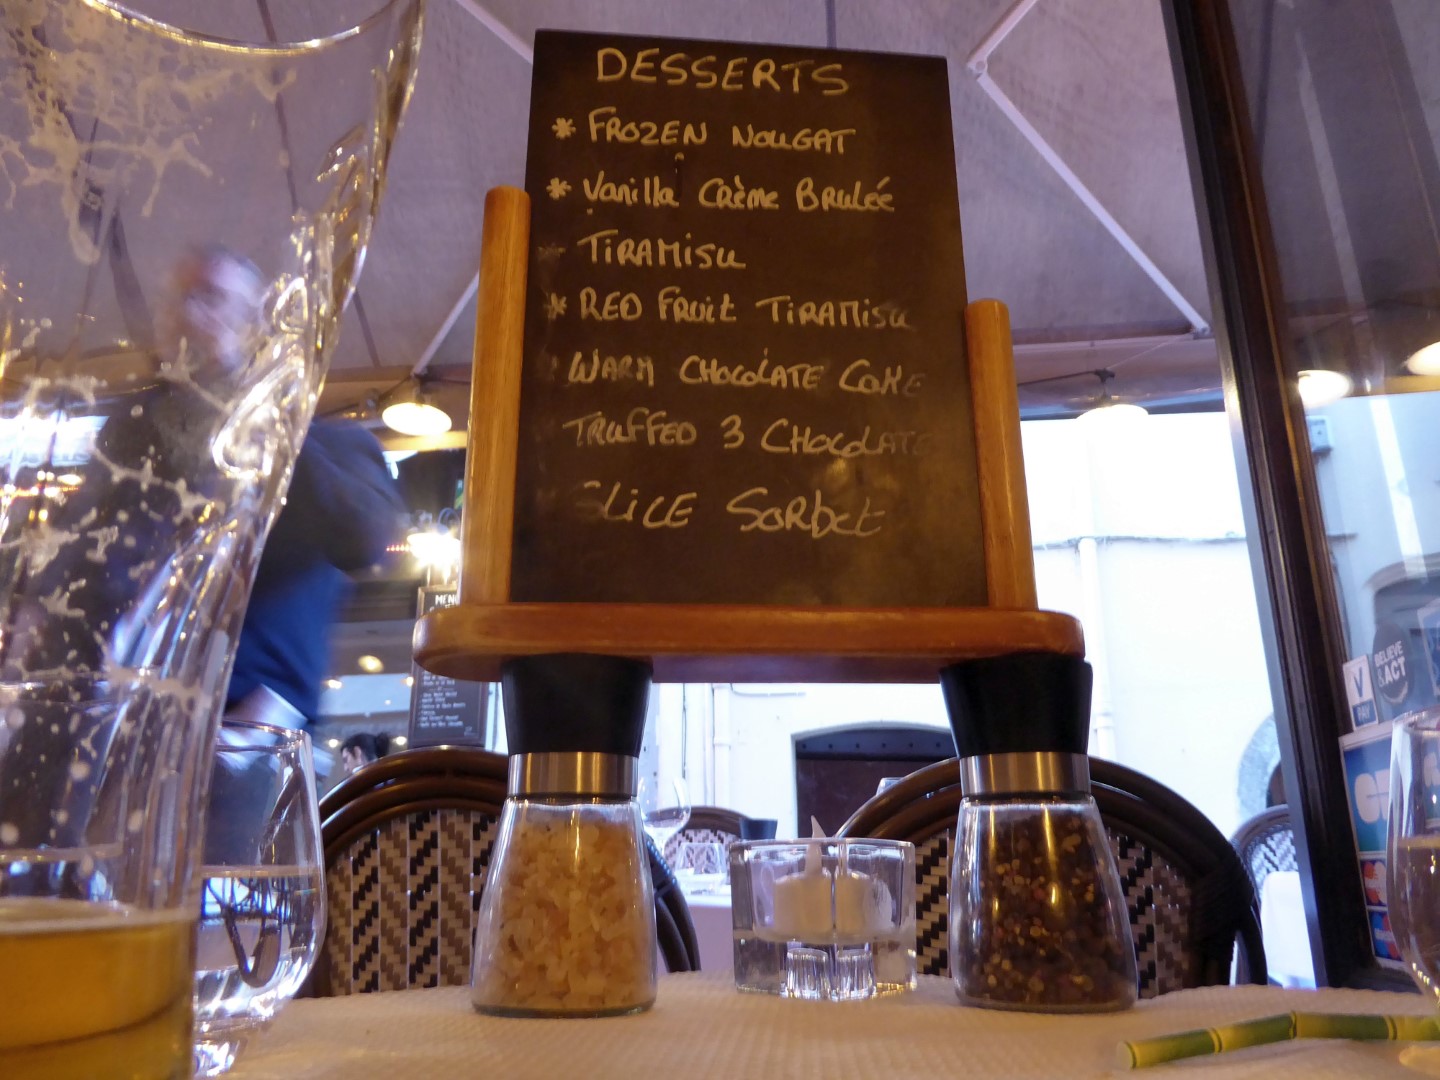 DESSERTS
* FROZEN NOUGAT
* Vanilla Crème Brulée
- TiRAMisu
* RED FRuit TiRAMisu
WARM CHOCOLATE CAKE
TRuFFED 3 CHOCOLATE
SLiCE SORbet
MENU
BELIEVE
&ACT
V
PAY